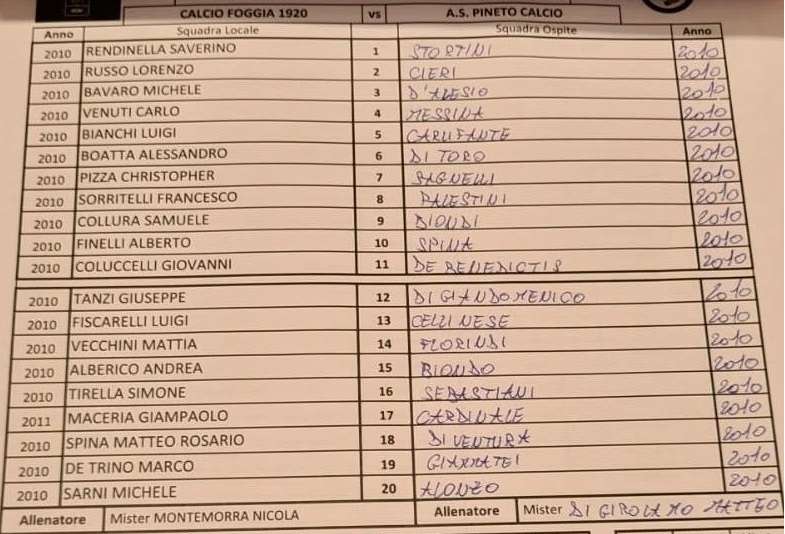 CALCIO FOGGIA 1920 vs A.S. PINETO CALCIO
Anno Squadra Locale Squadra Ospite Anno
2010 RENDINELLA SAVERINO 1 STORTINI 2010
2010 RUSSO LORENZO 2 CIERI 2010
2010 BAVARO MICHELE 3 D'ALESIO 2010
2010 VENUTI CARLO 4 MESSINA 2010
2010 BIANCHI LUIGI 5 CARUFANTE 2010
2010 BOATTA ALESSANDRO 6 DI TORO 2010
2010 PIZZA CHRISTOPHER 7 SAGNELLI 2010
2010 SORRITELLI FRANCESCO 8 PALESTINI 2010
2010 COLLURA SAMUELE 9 BIONDI 2010
2010 FINELLI ALBERTO 10 SPINA 2010
2010 COLUCCELLI GIOVANNI 11 DE BENEDICTIS 2010
2010 TANZI GIUSEPPE 12 DI GIANDOMENICO 2010
2010 FISCARELLI LUIGI 13 CELLINESE 2010
2010 VECCHINI MATTIA 14 FLORINDI 2010
2010 ALBERICO ANDREA 15 BIONDO 2010
2010 TIRELLA SIMONE 16 SEBASTIANI 2010
2011 MACERIA GIAMPAOLO 17 CARDINALE 2010
2010 SPINA MATTEO ROSARIO 18 DI VENTURA 2010
2010 DE TRINO MARCO 19 GIAMMATEI 2010
2010 SARNI MICHELE 20 ALONZO 2010
Allenatore Mister MONTEMORRA NICOLA Allenatore Mister DI GIROLAMO MATTEO